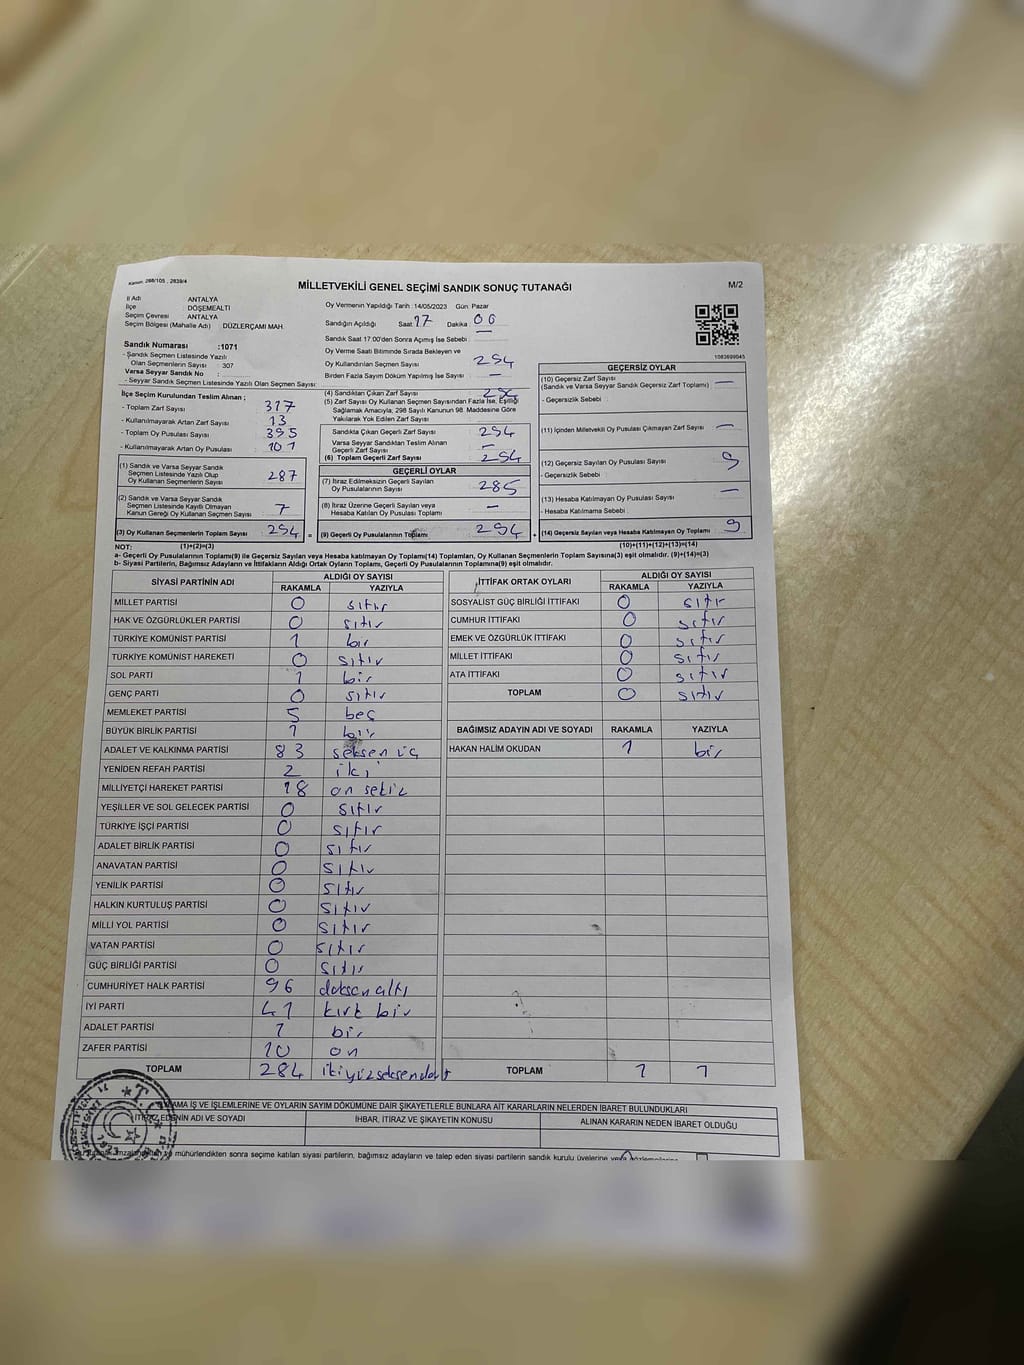 Kanun: 298/105 , 2839/4
MİLLETVEKİLİ GENEL SEÇİMİ SANDIK SONUÇ TUTANAĞI
M/2
İl Adı ANTALYA
İlçe DÖŞEMEALTI
Seçim Çevresi ANTALYA
Seçim Bölgesi (Mahalle Adı) DÜZLERÇAMI MAH.
Sandık Numarası :1071
- Sandık Seçmen Listesinde Yazılı
Olan Seçmenlerin Sayısı : 307
Varsa Seyyar Sandık No :
- Seyyar Sandık Seçmen Listesinde Yazılı Olan Seçmen Sayısı:
Oy Vermenin Yapıldığı Tarih :14/05/2023 Gün: Pazar
Sandığın Açıldığı Saat 17 Dakika 00
Sandık Saat 17:00'den Sonra Açılmış İse Sebebi : —
Oy Verme Saati Bitiminde Sırada Bekleyen ve
Oy Kullandırılan Seçmen Sayısı 294
Birden Fazla Sayım Döküm Yapılmış İse Sayısı —
1083699045
İlçe Seçim Kurulundan Teslim Alınan ;
- Toplam Zarf Sayısı 317
- Kullanılmayarak Artan Zarf Sayısı 13
- Toplam Oy Pusulası Sayısı 395
- Kullanılmayarak Artan Oy Pusulası 101
(1) Sandık ve Varsa Seyyar Sandık
Seçmen Listesinde Yazılı Olup
Oy Kullanan Seçmenlerin Sayısı 287
(2) Sandık ve Varsa Seyyar Sandık
Seçmen Listesinde Kayıtlı Olmayan
Kanun Gereği Oy Kullanan Seçmen Sayısı 7
(3) Oy Kullanan Seçmenlerin Toplam Sayısı 294 =
(4) Sandıktan Çıkan Zarf Sayısı
(5) Zarf Sayısı Oy Kullanan Seçmen Sayısından Fazla İse, Eşitliği
Sağlamak Amacıyla; 298 Sayılı Kanunun 98. Maddesine Göre
Yakılarak Yok Edilen Zarf Sayısı
Sandıkta Çıkan Geçerli Zarf Sayısı 294
Varsa Seyyar Sandıktan Teslim Alınan
Geçerli Zarf Sayısı —
(6) Toplam Geçerli Zarf Sayısı 294
GEÇERLİ OYLAR
(7) İtiraz Edilmeksizin Geçerli Sayılan
Oy Pusulalarının Sayısı 285
(8) İtiraz Üzerine Geçerli Sayılan veya
Hesaba Katılan Oy Pusulası Toplamı —
(9) Geçerli Oy Pusulalarının Toplamı 294 +
GEÇERSİZ OYLAR
(10) Geçersiz Zarf Sayısı —
(Sandık ve Varsa Seyyar Sandık Geçersiz Zarf Toplamı)
- Geçersizlik Sebebi :
(11) İçinden Milletvekili Oy Pusulası Çıkmayan Zarf Sayısı —
(12) Geçersiz Sayılan Oy Pusulası Sayısı 9
- Geçersizlik Sebebi :
(13) Hesaba Katılmayan Oy Pusulası Sayısı —
- Hesaba Katılmama Sebebi :
(14) Geçersiz Sayılan veya Hesaba Katılmayan Oy Toplamı 9
NOT: (1)+(2)=(3) (10)+(11)+(12)+(13)=(14)
a- Geçerli Oy Pusulalarının Toplamı(9) ile Geçersiz Sayılan veya Hesaba katılmayan Oy Toplamı(14) Toplamları, Oy Kullanan Seçmenlerin Toplam Sayısına(3) eşit olmalıdır. (9)+(14)=(3)
b- Siyasi Partilerin, Bağımsız Adayların ve İttifakların Aldığı Ortak Oyların Toplamı, Geçerli Oy Pusulalarının Toplamına(9) eşit olmalıdır.
SİYASİ PARTİNİN ADI ALDIĞI OY SAYISI
RAKAMLA YAZIYLA
MİLLET PARTİSİ 0 sıfır
HAK VE ÖZGÜRLÜKLER PARTİSİ 0 sıfır
TÜRKİYE KOMÜNİST PARTİSİ 1 bir
TÜRKİYE KOMÜNİST HAREKETİ 0 sıfır
SOL PARTİ 1 bir
GENÇ PARTİ 0 sıfır
MEMLEKET PARTİSİ 5 beş
BÜYÜK BİRLİK PARTİSİ 1 bir
ADALET VE KALKINMA PARTİSİ 83 seksen üç
YENİDEN REFAH PARTİSİ 2 iki
MİLLİYETÇİ HAREKET PARTİSİ 18 on sekiz
YEŞİLLER VE SOL GELECEK PARTİSİ 0 sıfır
TÜRKİYE İŞÇİ PARTİSİ 0 sıfır
ADALET BİRLİK PARTİSİ 0 sıfır
ANAVATAN PARTİSİ 0 sıfır
YENİLİK PARTİSİ 0 sıfır
HALKIN KURTULUŞ PARTİSİ 0 sıfır
MİLLİ YOL PARTİSİ 0 sıfır
VATAN PARTİSİ 0 sıfır
GÜÇ BİRLİĞİ PARTİSİ 0 sıfır
CUMHURİYET HALK PARTİSİ 96 doksan altı
İYİ PARTİ 41 kırk bir
ADALET PARTİSİ 1 bir
ZAFER PARTİSİ 10 on
TOPLAM 284 ikiyüzseksendört
İTTİFAK ORTAK OYLARI ALDIĞI OY SAYISI
RAKAMLA YAZIYLA
SOSYALİST GÜÇ BİRLİĞİ İTTİFAKI 0 sıfır
CUMHUR İTTİFAKI 0 sıfır
EMEK VE ÖZGÜRLÜK İTTİFAKI 0 sıfır
MİLLET İTTİFAKI 0 sıfır
ATA İTTİFAKI 0 sıfır
TOPLAM 0 sıfır
BAĞIMSIZ ADAYIN ADI VE SOYADI RAKAMLA YAZIYLA
HAKAN HALİM OKUDAN 1 bir
TOPLAM 1 1
İŞ VE İŞLEMLERİNE VE OYLARIN SAYIM DÖKÜMÜNE DAİR ŞİKAYETLERLE BUNLARA AİT KARARLARIN NELERDEN İBARET BULUNDUKLARI
İTİRAZ EDENİN ADI VE SOYADI İHBAR, İTİRAZ VE ŞİKAYETİN KONUSU ALINAN KARARIN NEDEN İBARET OLDUĞU
mühürlendikten sonra seçime katılan siyasi partilerin, bağımsız adayların ve talep eden siyasi partilerin sandık kurulu üyelerine veya